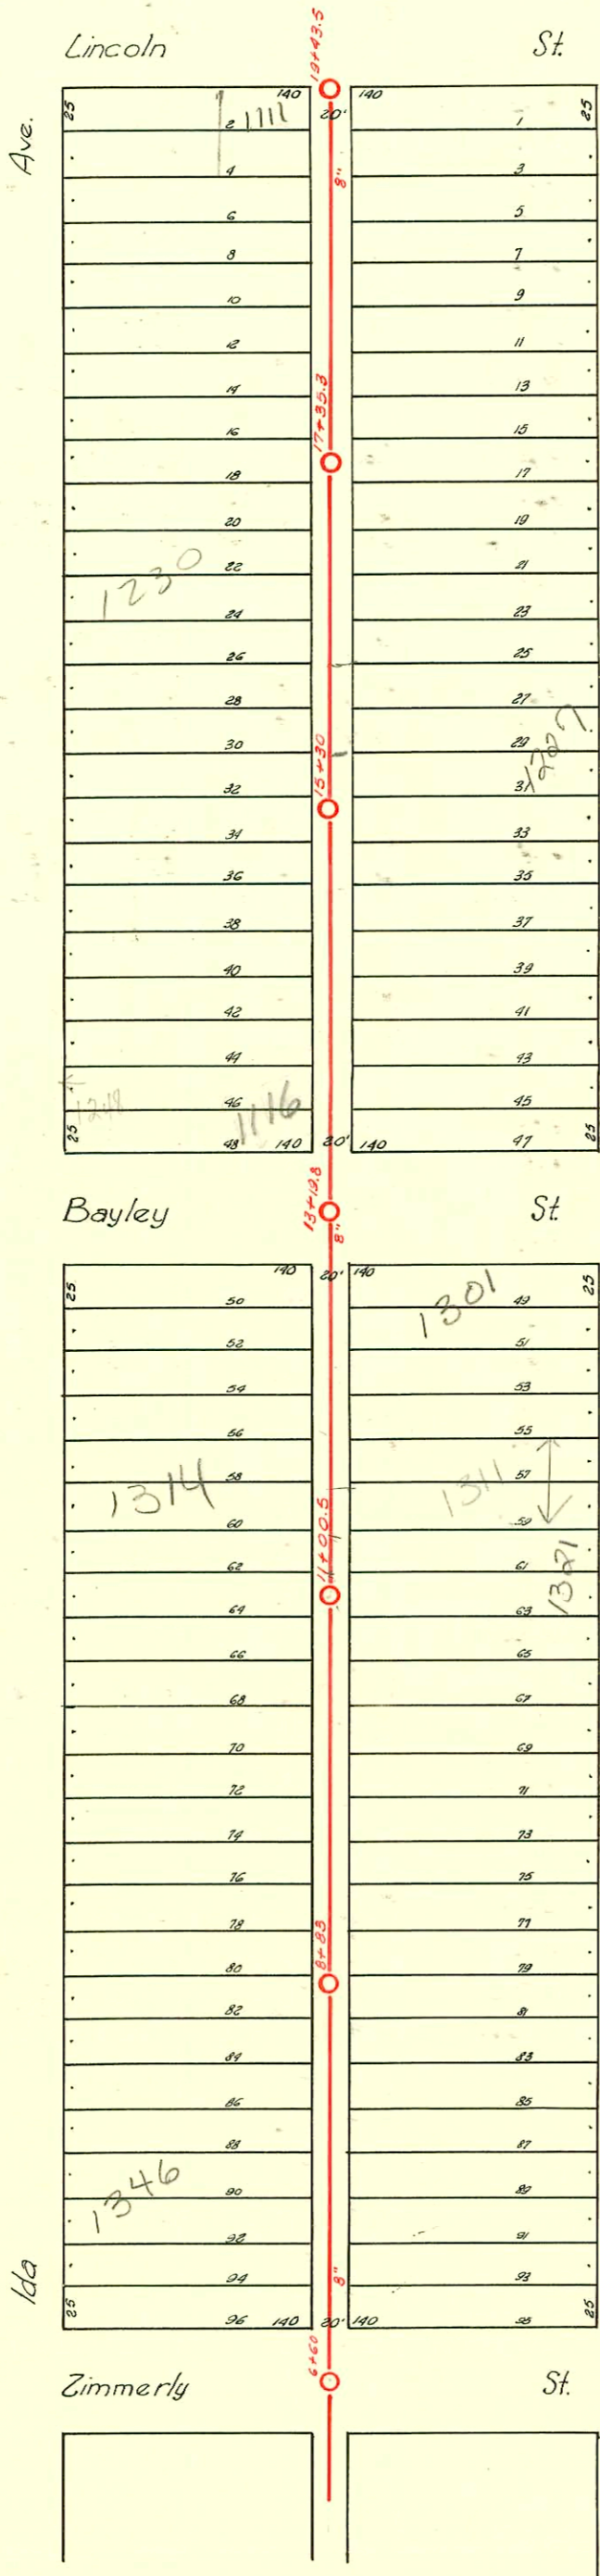 19+43.5
Lincoln St.
Ave.
25 140 20' 140 25
2 1111 1
8"
4 3
6 5
8 7
10 9
12 11
14 13
17+35.3
16 15
18 17
20 19
22 21
1230
24 23
26 25
28 27
30 29
1227
15+30
32 31
34 33
36 35
38 37
40 39
42 41
44 43
1248
46 1116 45
25 48 140 20' 140 47 25
13+19.8
Bayley St.
8"
25 140 20' 140 25
1301
50 49
52 51
54 53
56 55
58 57
1314 1311
60 59
11+00.5
62 61
1321
64 63
66 65
68 67
70 69
72 71
74 73
76 75
78 77
8+83
80 79
82 81
84 83
86 85
88 87
1346
90 89
92 91
94 93
Ida
8"
25 96 140 20' 140 95 25
6+60
Zimmerly St.